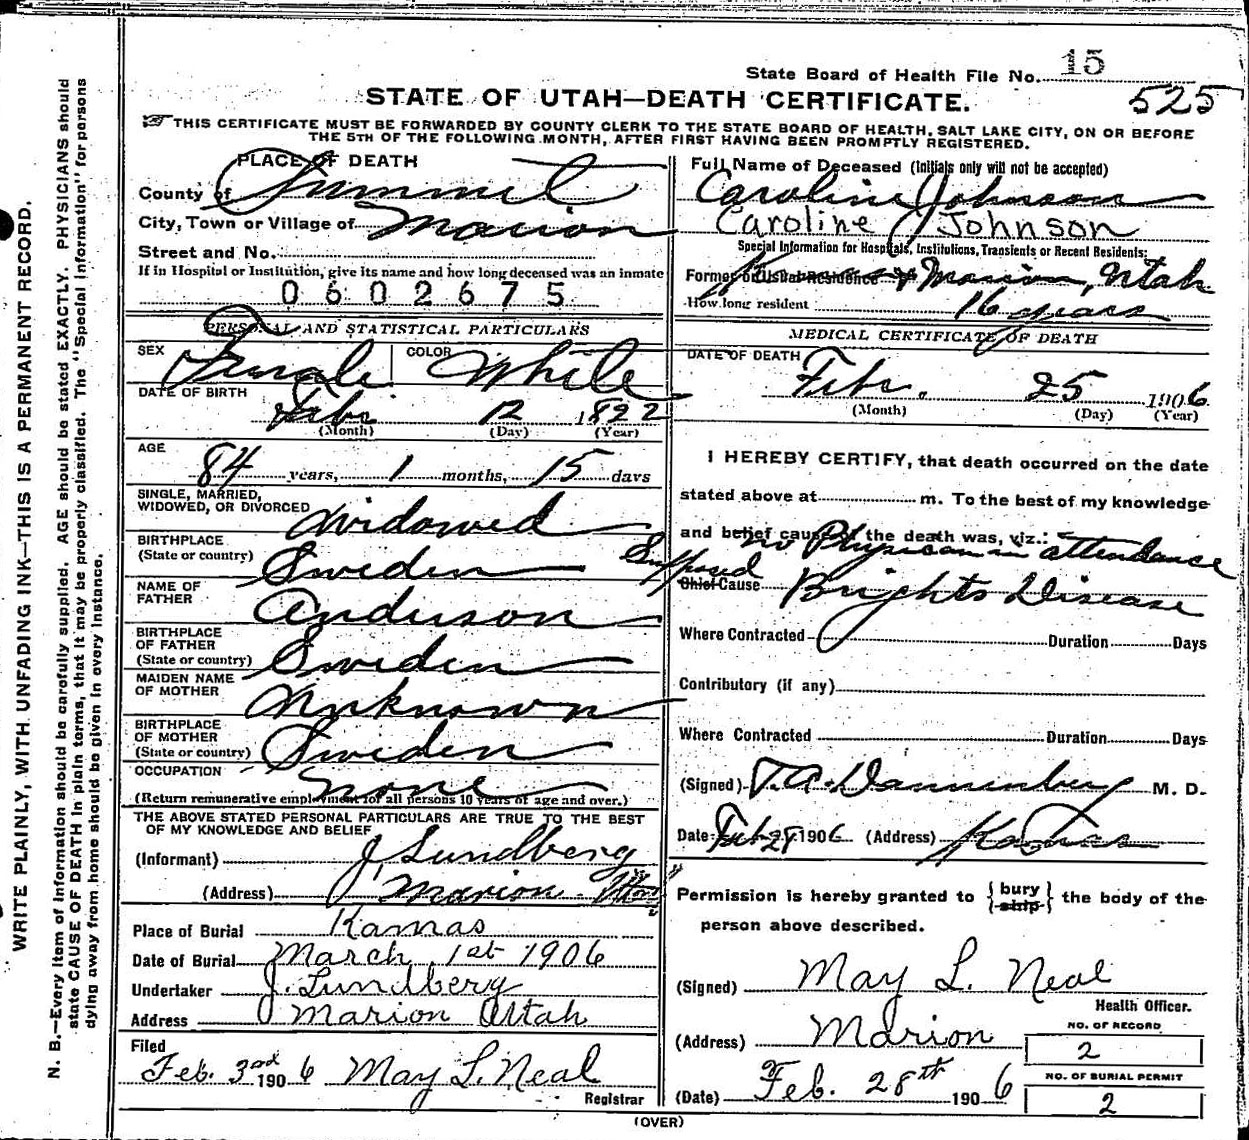 State Board of Health File No. 15
525
STATE OF UTAH—DEATH CERTIFICATE.
THIS CERTIFICATE MUST BE FORWARDED BY COUNTY CLERK TO THE STATE BOARD OF HEALTH, SALT LAKE CITY, ON OR BEFORE
THE 5TH OF THE FOLLOWING MONTH, AFTER FIRST HAVING BEEN PROMPTLY REGISTERED.
WRITE PLAINLY, WITH UNFADING INK—THIS IS A PERMANENT RECORD.
N. B.—Every item of information should be carefully supplied. AGE should be stated EXACTLY. PHYSICIANS should
state CAUSE OF DEATH in plain terms, that it may be properly classified. The "Special Information" for persons
dying away from home should be given in every instance.
PLACE OF DEATH
County of Summit
City, Town or Village of Marion
Street and No.
If in Hospital or Institution, give its name and how long deceased was an inmate
0602675
PERSONAL AND STATISTICAL PARTICULARS
SEX Female COLOR White
DATE OF BIRTH
Feb. 12 1822
(Month) (Day) (Year)
AGE
84 years, 1 months, 15 days
SINGLE, MARRIED,
WIDOWED, OR DIVORCED Widowed
BIRTHPLACE
(State or country) Sweden
NAME OF
FATHER Anderson
BIRTHPLACE
OF FATHER
(State or country) Sweden
MAIDEN NAME
OF MOTHER Unknown
BIRTHPLACE
OF MOTHER
(State or country) Sweden
OCCUPATION none
(Return remunerative employment for all persons 10 years of age and over.)
THE ABOVE STATED PERSONAL PARTICULARS ARE TRUE TO THE BEST
OF MY KNOWLEDGE AND BELIEF
(Informant) J. Lundberg
(Address) Marion Utah
Place of Burial Kamas
Date of Burial March 1st 1906
Undertaker J. Lundberg
Address Marion Utah
Filed
Feb. 3rd 1906 May L. Neal
Registrar
Full Name of Deceased (Initials only will not be accepted)
Caroline Johnson
Caroline Johnson
Special Information for Hospitals, Institutions, Transients or Recent Residents:
Former or Usual Residence Marion, Utah
How long resident 16 years
MEDICAL CERTIFICATE OF DEATH
DATE OF DEATH
Feb. 25 1906
(Month) (Day) (Year)
I HEREBY CERTIFY, that death occurred on the date
stated above at m. To the best of my knowledge
and belief cause of the death was, viz.:
no Physician in attendance
Supposed
Chief Cause Brights Disease
Where Contracted Duration Days
Contributory (if any)
Where Contracted Duration Days
(Signed) T. A. Dannenberg M. D.
Date Feb 28 1906 (Address) Kamas
Permission is hereby granted to { bury ship } the body of the
person above described.
(Signed) May L. Neal
Health Officer.
(Address) Marion
NO. OF RECORD
2
NO. OF BURIAL PERMIT
2
(Date) Feb. 28th 1906
(OVER)